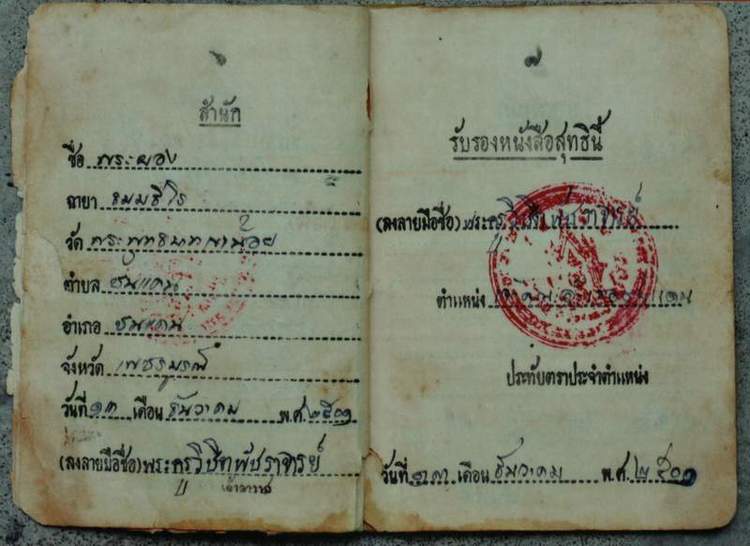 ๖
สำนัก
ชื่อ พระผอง
ฉายา ธมฺมธีโร
วัด พระพุทธบาทเขาน้อย
ตำบล ชนแดน
อำเภอ ชนแดน
จังหวัด เพชรบูรณ์
วันที่ ๑๓ เดือน ธันวาคม พ.ศ. ๒๕๐๑
(ลงลายมือชื่อ) พระครูวิชิตพัชราจารย์
เจ้าอาวาส
๗
รับรองหนังสือสุทธินี้
(ลงลายมือชื่อ) พระครูวิชิตพัชราจารย์
ตำแหน่ง
ประทับตราประจำตำแหน่ง
วันที่ ๑๓ เดือน ธันวาคม พ.ศ. ๒๕๐๑